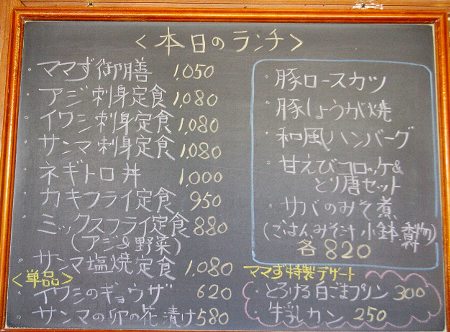 <本日のランチ>
・ママず御膳 1,050
・アジ刺身定食 1,080
・イワシ刺身定食 1,080
・サンマ刺身定食 1,080
・ネギトロ丼 1,000
・カキフライ定食 950
・ミックスフライ定食 880
(アジ&野菜)
・サンマ塩焼定食 1,080
<単品>
・イワシのギョウザ 620
・サンマの卵の花漬け 580
・豚ロースカツ
・豚しょうが焼
・和風ハンバーグ
・甘えびコロッケ&
とり唐セット
・サバのみそ煮
(ごはんみそ汁小鉢
各820
ママず特製デザート
・とろける白ごまプリン 300
・牛乳カン 250